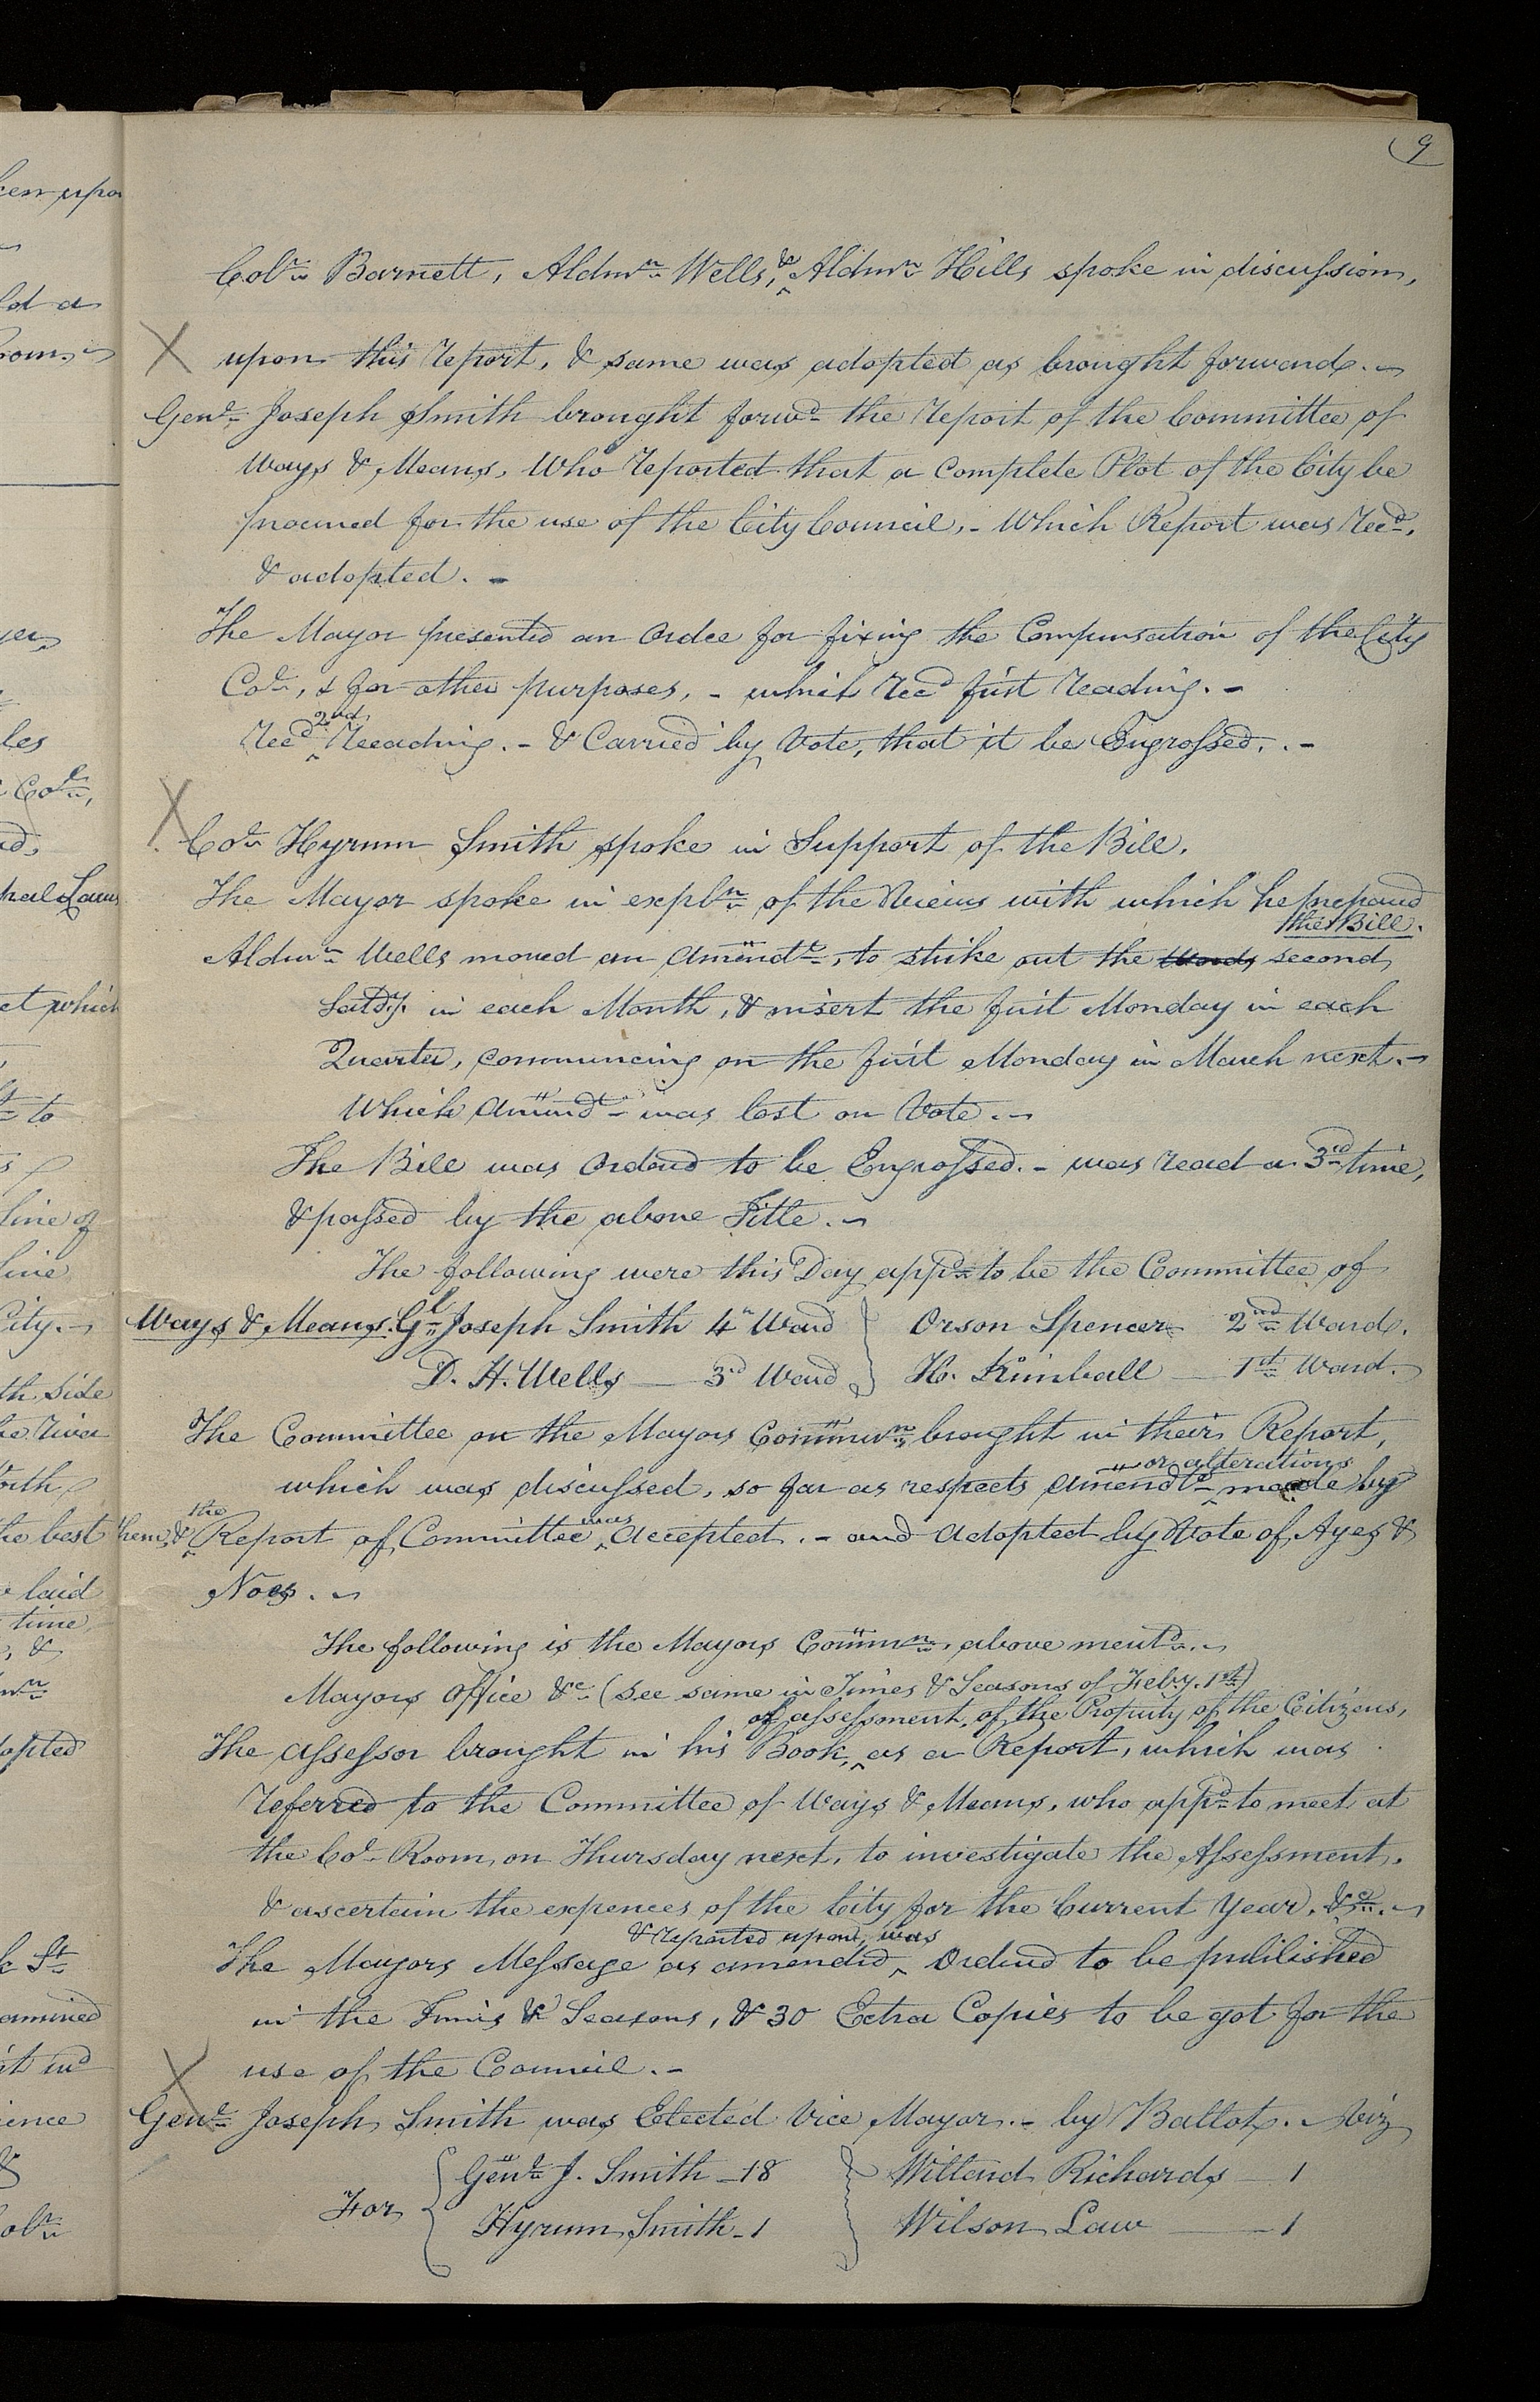 9
Colr. Barnett, Aldmn. Wells, & Aldmn. Hills spoke in discussion,
upon this report, & same was adopted as brought forward.
Genl. Joseph Smith brought forwd. the report of the Committee of
Ways & Means, Who reported that a complete Plot of the City be
procured for the use of the City Council, - Which Report was recd.,
& adopted. -
The Mayor presented an Ordce for fixing the Compensation of the City
Col., & for other purposes, - which recd first reading. -
Recd 2nd Reeading. - & Carried by Vote, that it be Engrossed. -
Colr. Hyrum Smith spoke in Support of the Bill.
The Mayor spoke in expln. of the Views with which he prepared
the Bill.
Aldmn. Wells moved an Amendt., to strike out the words second
Satdy. in each Month, & insert the first Monday in each
Quarter, commencing on the first Monday in March next. -
Which Amendt. was lost on Vote. -
The Bill was Ordered to be Engrossed. - was read a 3rd. time,
& passed by the above Title. -
The following were this Day appd. to be the Committee of
Ways & Means. Gl. Joseph Smith 4th Ward } Orson Spencer 2nd. Ward.
D. H. Wells — 3rd Ward } H. Kimball — 1st. Ward.
The Committee on the Mayors Communn. brought in their Report,
which was discussed, so far as respects Amendts. or alterations made by
them, & the Report of Committee was accepted. - and adopted by Vote of Ayes &
Noes. -
The following is the Mayors Commn., above mentd. -
Mayors Office &c. (see same in Times & Seasons of Feby. 1st.)
of assessment, of the Property of the Citizens,
The Assessor brought in his Book, as a Report, which was
referred to the Committee of Ways & Means, who appd. to meet at
the Col. Room, on Thursday next, to investigate the Assessment,
& ascertain the expences of the City for the Current Year, &c. -
& reported upon, was
The Mayors Message as amended Ordered to be published
in the Times & Seasons, & 30 Extra Copies to be got for the
use of the Council. -
Genl. Joseph Smith was Elected Vice Mayor. - by Ballot. Viz
For { Genl. J. Smith - 18 } Willard Richards — 1
Hyrum Smith - 1 Wilson Law — 1